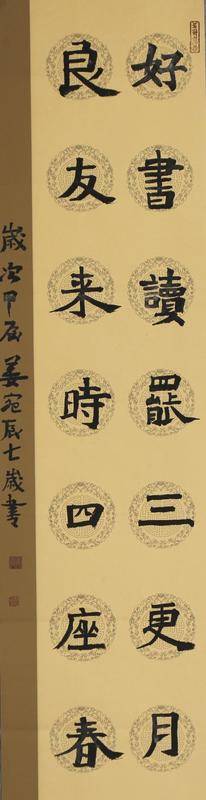 好書讀罷三更月
良友来時四座春
歲次甲辰姜宛辰七歲書